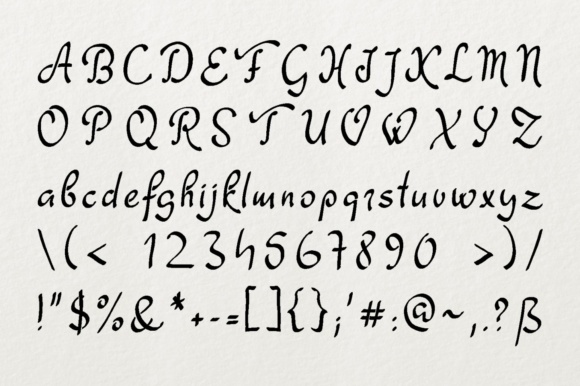 ABCDEFGHIJKLMN
OPQRSTUVWXYZ
abcdefghijklmnopqrstuvwxyz
\(< 1234567890 >)/
!"$%&*+-=[]{};'#:@~,.?ß